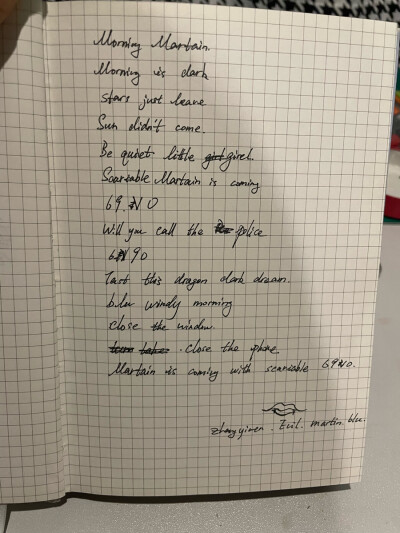 Morning Martain.
Morning is dark
stars just leave
Sun didn't come.
Be quiet little girel.
Scareable Martain is coming
69.NO
Will you call the police
6N90
Last this dragon dark dream.
blu windy morning
close the window.
close the phone
Martain is coming with scareable 69NO.
zhengyiwen. Evil. martin blu.